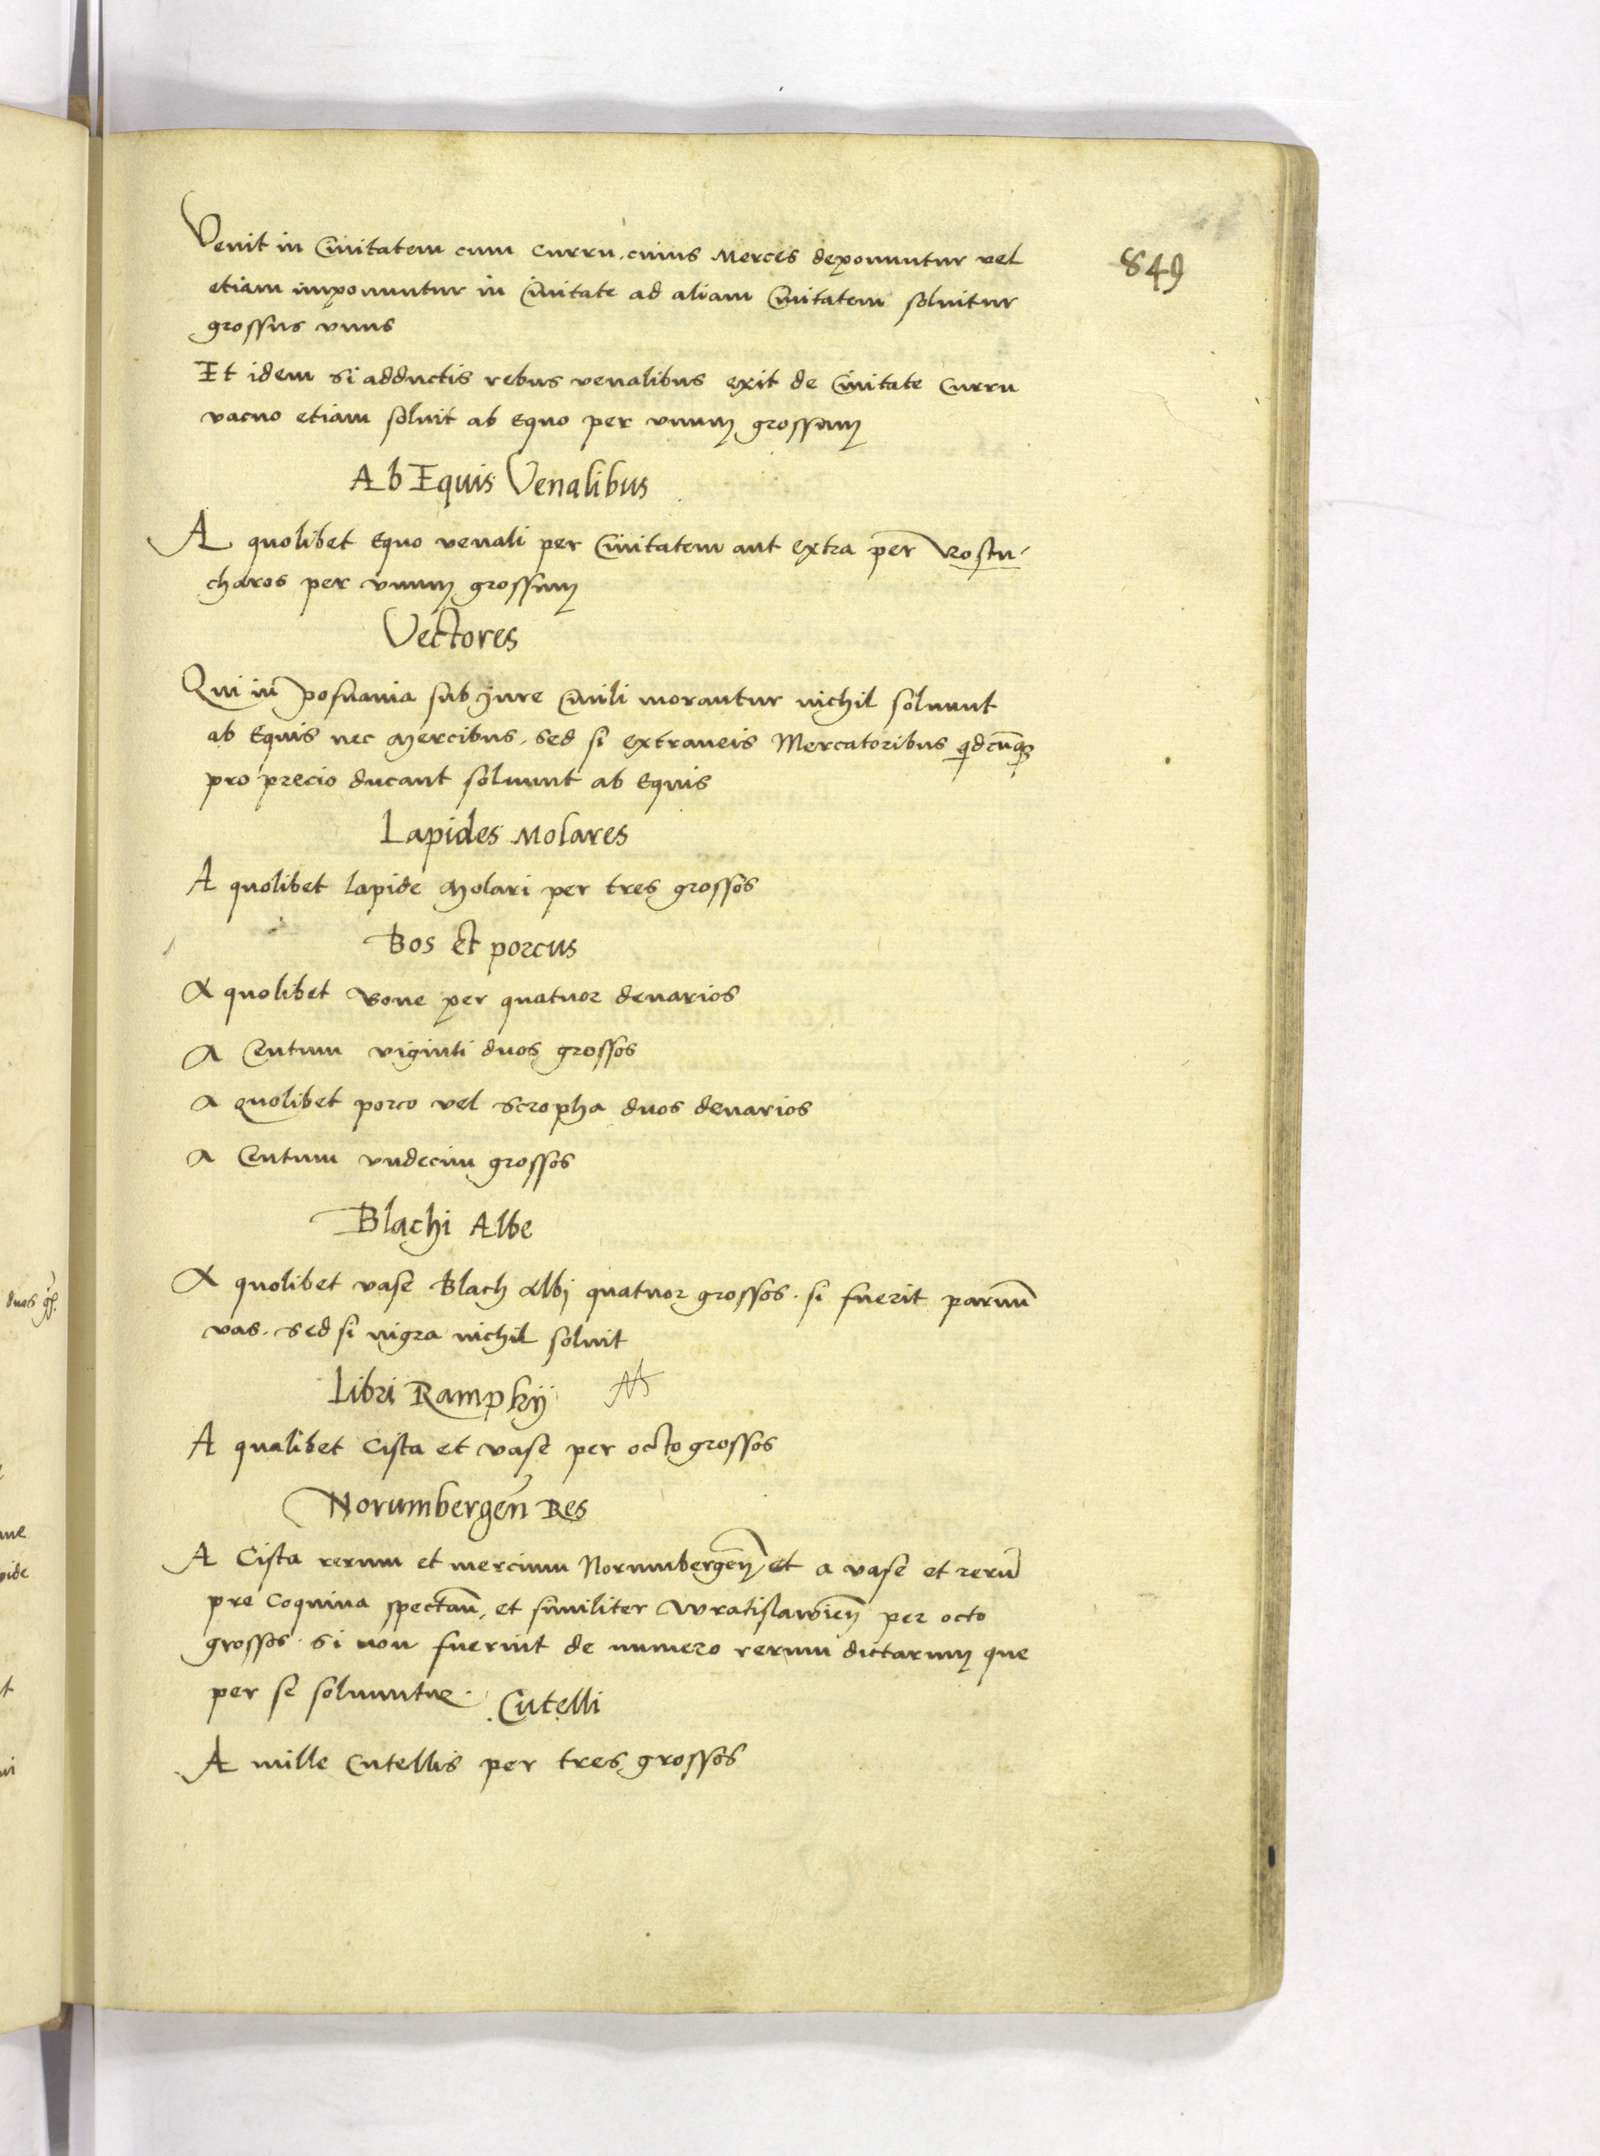 849
Venit in Ciuitatem cum curru, cuius Merces deponuntur vel
etiam imponuntur in Ciuitate ad aliam Ciuitatem soluitur
grossus vnus
Et idem si adductis rebus venalibus exit de Ciuitate Curru
vacuo etiam soluit ab Equo per vnum grossum
Ab Equis Venalibus
A quolibet Equo venali per Ciuitatem aut extra per Rostu-
charos per vnum grossum
Vectores
Qui in Posnania sub Jure Ciuili morantur nichil soluunt
ab Equis nec Mercibus, sed si extraneis Mercatoribus qdcūqz
pro precio ducant soluunt ab Equis
Lapides Molares
A quolibet lapide Molari per tres grossos
Bos et porcus
A quolibet Boue per quatuor denarios
A Centum viginti duos grossos
A quolibet porco vel scropha duos denarios
A Centum vndecim grossos
Blachi Albe
A quolibet vase Blach Albj quatuor grossos. si fuerit paruū
vas. sed si nigra nichil soluit
Libri Ramphij
A qualibet Cista et vase per octo grossos
Norumbergeñ Res
A Cista rerum et mercium Norumbergeñ, et a vase et rerū
pre Coquina spectañ, et similiter Wratislawieñ per octo
grossos. si non fuerint de numero rerum dictarum que
per se soluuntur.
Cutelli
A mille Cutellis per tres grossos
duos gs.